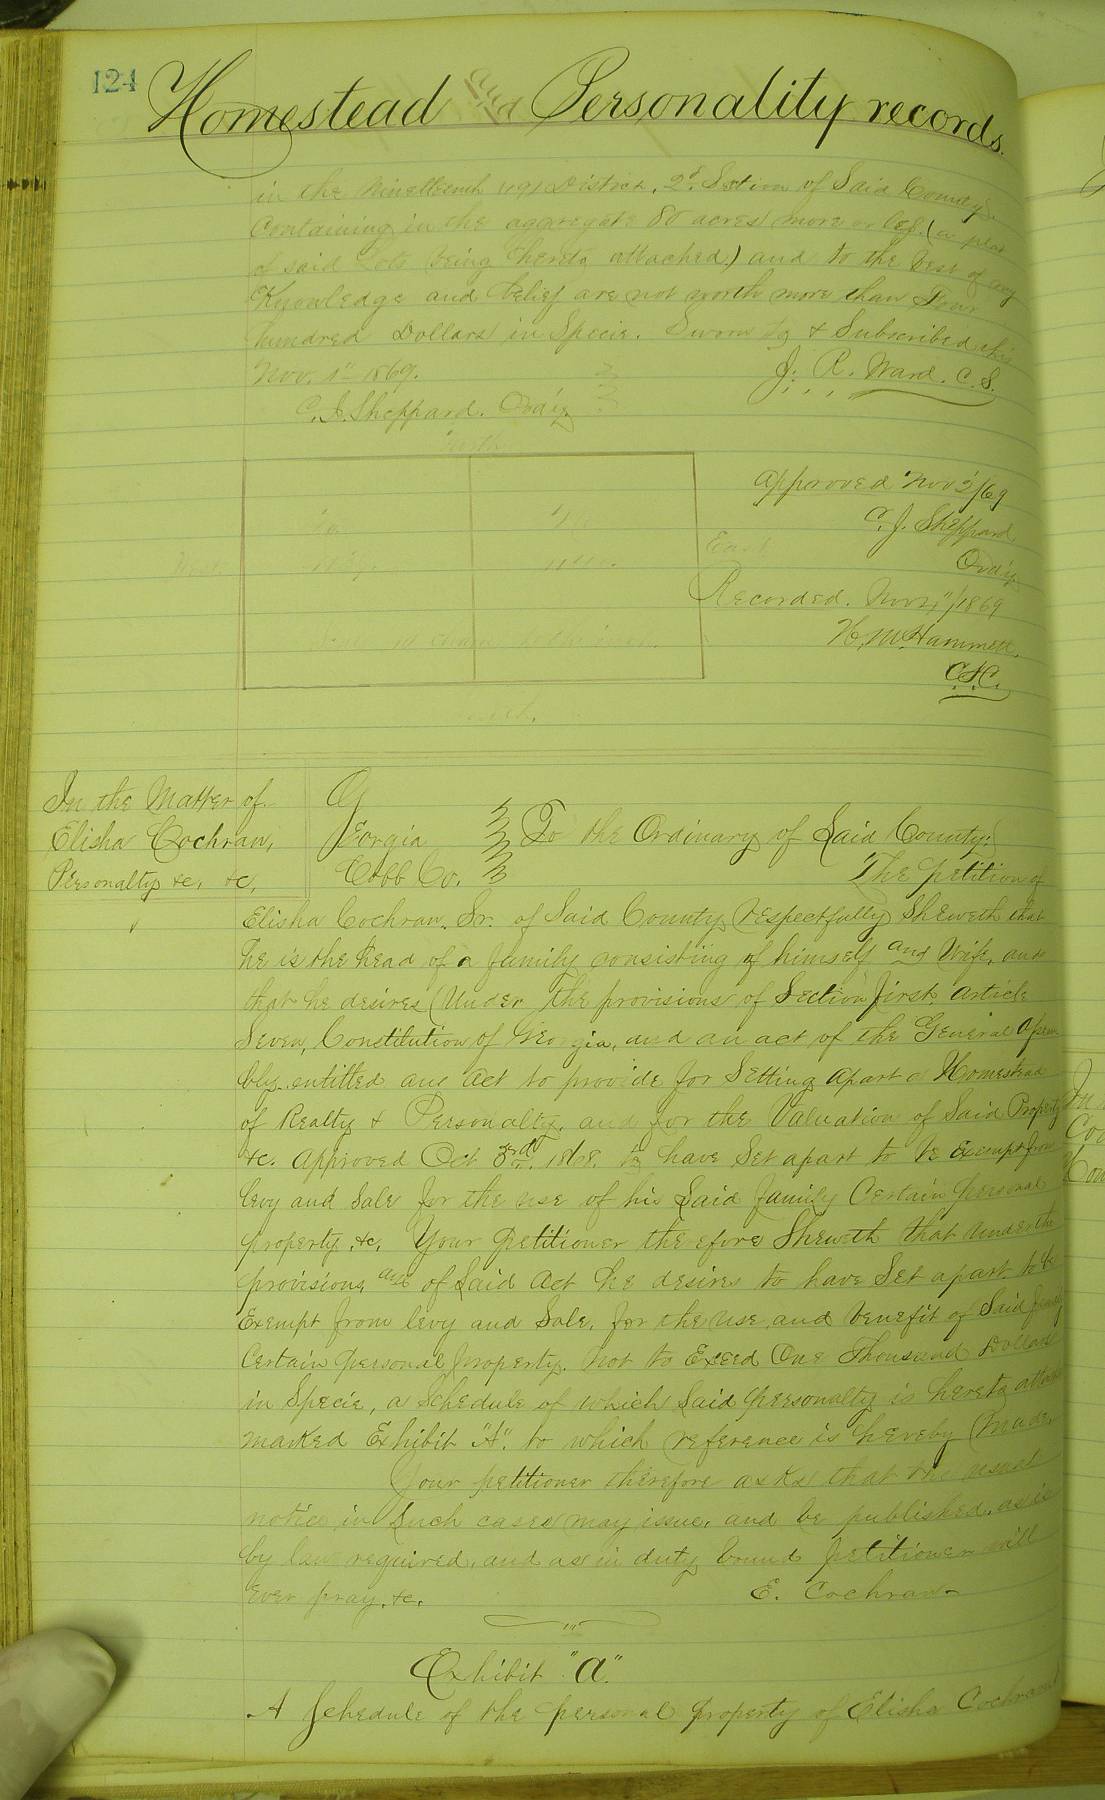 124
Homestead and Personality records.
in the Nineteenth (19) District, 2d. Section of Said County.
Containing in the aggregate 80 acres more or less. (a plat
of said Lots being hereto attached) and to the best of my
Knowledge and belief are not worth more than Four
hundred Dollars in Specie. Sworn to & Subscribed this
Nov. 1st 1869. J. R. Ward. C. S.
C. J. Sheppard. Ord'y
North
Approved Nov 2/69
C. J. Sheppard
East
Ord'y
West
Recorded. Nov 2"/1869
H. M. Hammett,
C.S.C.
In the Matter of
Elisha Cochran,
Personalty &c, &c,
Georgia
Cobb Co.
To the Ordinary of Said County:
The petition of
Elisha Cochran. Sr. of Said County respectfully Sheweth that
he is the head of a family consisting of himself and Wife, and
that he desires (Under the provisions of Section first, Article
Seven, Constitution of Georgia, and an act of the General Assem
bly, entitled an Act to provide for Setting apart a Homestead
of Realty & Personalty, and for the Valuation of Said Property
&c. Approved Oct 3rd. 1868. to have Set apart to be exempt from
levy and Sale for the use of his Said family Certain personal
property, &c. Your Petitioner therefore Sheweth that under the
provisions of Said Act he desires to have Set apart to be
Exempt from levy and Sale, for the use and benefit of Said family
Certain personal property. Not to Exceed One Thousand Dollars
in Specie, a Schedule of which Said personalty is hereto attached
marked Exhibit "A". to which reference is hereby Made.
Your petitioner therefore asks that the usual
notice in Such cases may issue, and be published, as is
by law required, and as in duty bound petitioner will
ever pray, &c. E. Cochran
Exhibit "a"
A Schedule of the personal property of Elisha Cochran